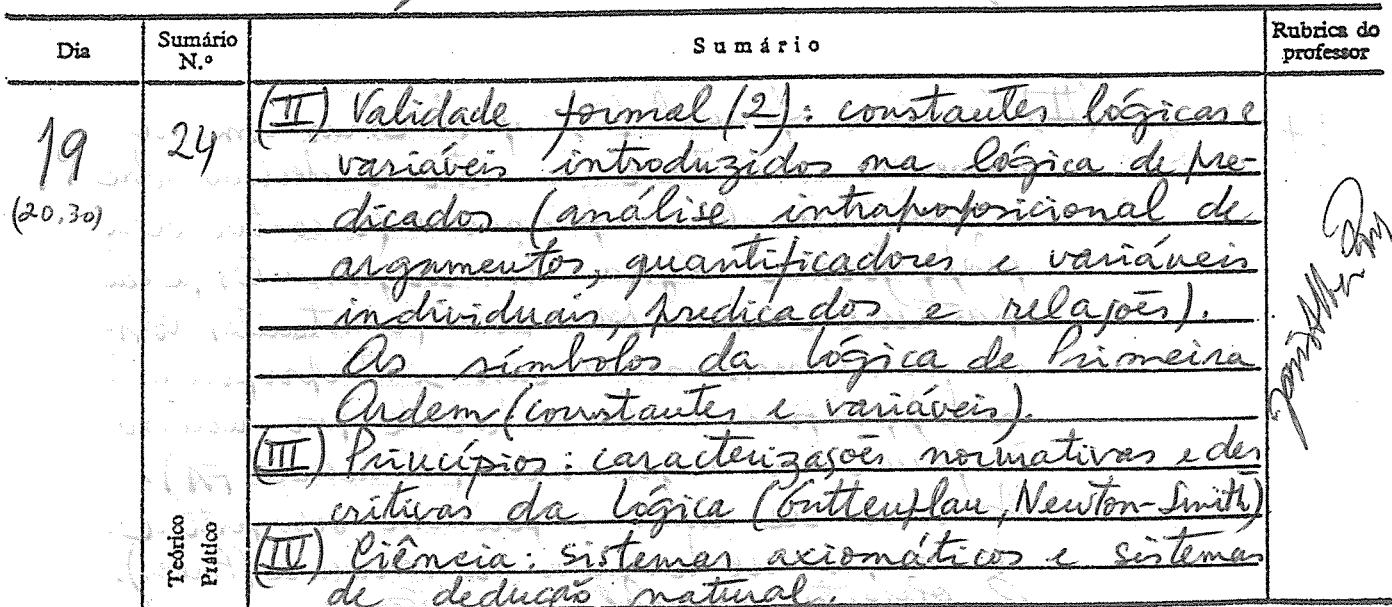 Dia Sumário N.º Sumário Rubrica do professor
19 24 (II) Validade formal (2): constantes lógicas e
(20,30) variáveis introduzidos na lógica de pre-
dicados (análise intraproposicional de
argumentos, quantificadores e variáveis
individuais, predicados e relações).
Os símbolos da lógica de Primeira
Ordem (constantes e variáveis).
(III) Princípios: caracterizações normativas e des
critivas da Lógica (Guttenplan, Newton-Smith)
Teórico Prático (IV) Ciência: sistemas axiomáticos e sistemas
de dedução natural.